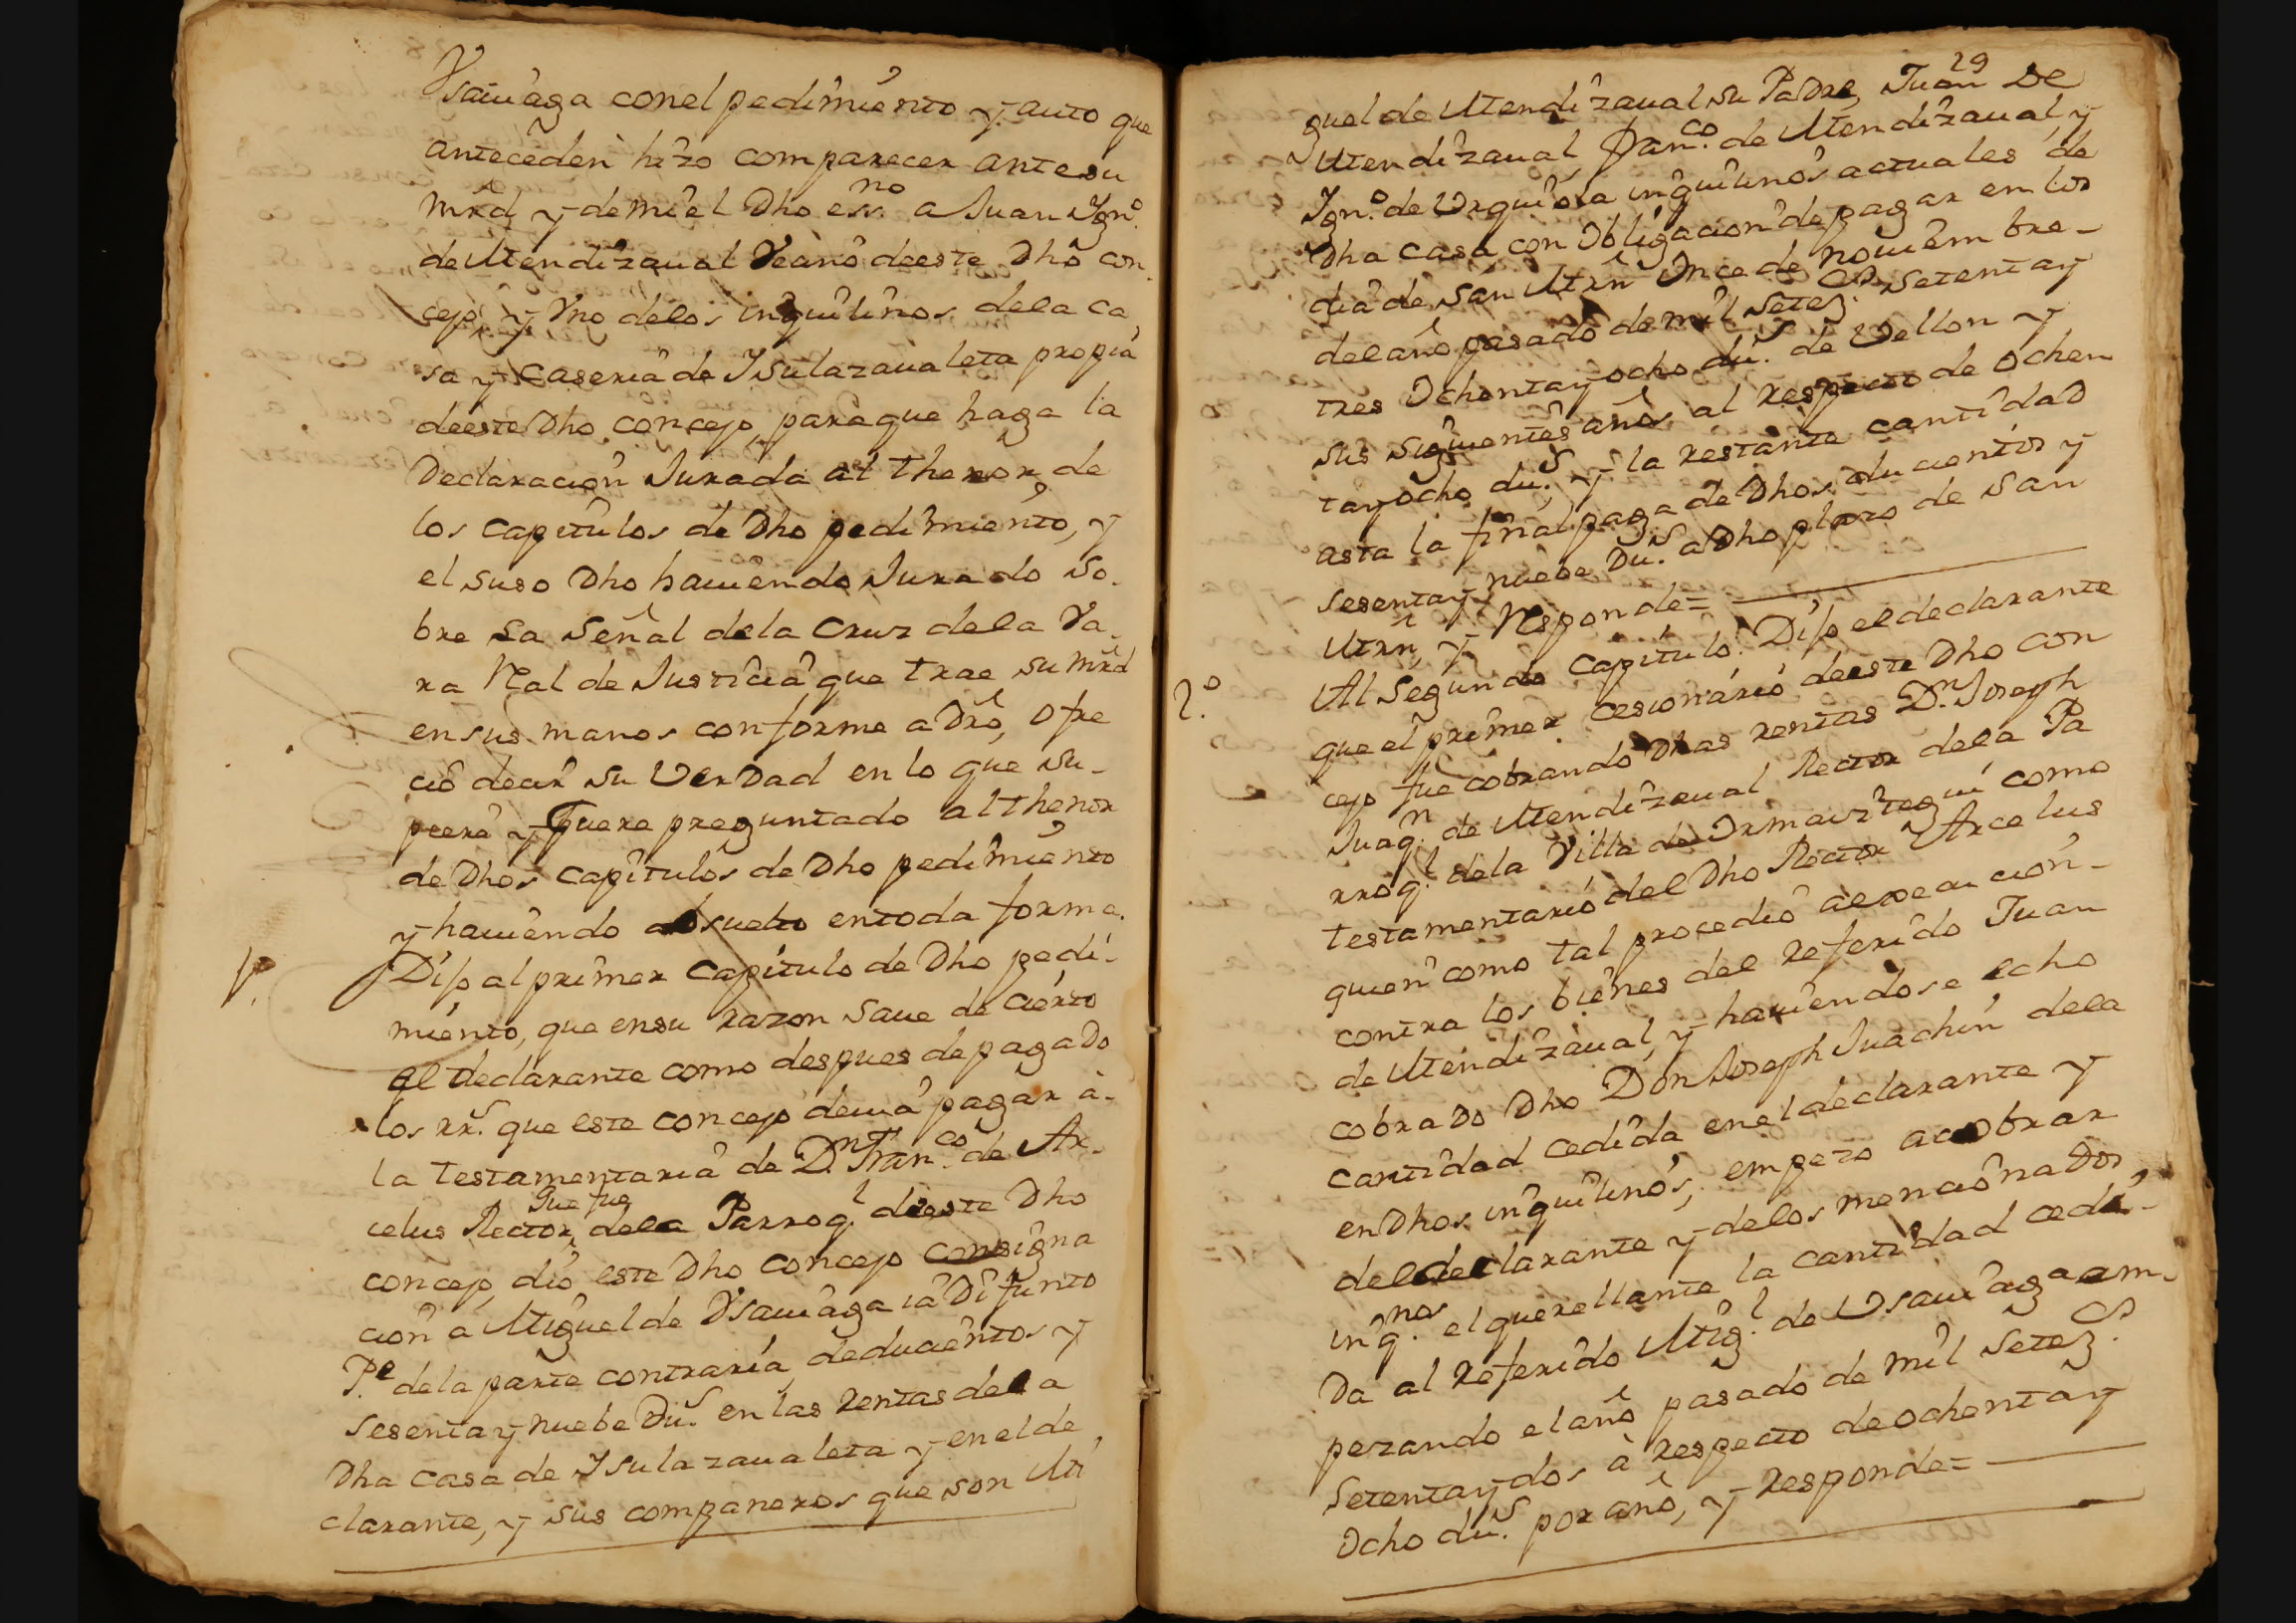 Ysauiaga con el pedimiento y auto que
anteceden hizo comparecer ante su
mrd y de mi el Dho essno a Juan Ygno.
de Mendizaual Veano de este Dho con
cejo, y Vno de los inquilinos de la ca
sa y Caseria de Ysulazaualeta propia
de este Dho concejo para que haga la
Declaracion Jurada al thenor de
los capitulos de Dho pedimiento, y
el suso Dho hauiendo Jurado so.
bre la Señal de la Cruz de la Va.
ra Real de Justicia que trae su mrd
en sus manos conforme a Dro, ofre
cio decir su Verdad en lo que su-
piera y fuere preguntado al thenor
de Dhos capitulos de Dho pedimiento
y hauiendo absuelto en toda forma.
1º. Dijo al primer Capitulo de Dho pedi-
miento, que en su razon saue de cierto
el declarante como despues de pagado
los rrs. que este concejo deuia pagar à-
la testamentaria de Dn. Franco. de Ar-
celus Rector, que fue de la Parroql. de este Dho
concejo, dio este Dho concejo consigna
cion a Miguel de Ysauiaga ia Difunto
Pe. de la parte contraria, de ducientos y
sesenta y nuebe Dus. en las Rentas de la
Dha casa de Ysulazaualeta y en el de
clarante, y sus companeros que son Mi
29
guel de Mendizaual su Padre, Juan De
Mendizaual, Franco. de Mendizaual, y
Ygno. de Urquiola inquilinos actuales de
Dha casa con Obligacion de pagar en los
dia de San Mrn Once de nouiembre-
del año pasado de mil setezs. setenta y
tres Ochenta y ocho dus. de Vellon y
sus siguientes años al respecto de ochen
ta y ocho dus., y la restante cantidad
asta la final paga de Dhos ducientos y
sesenta y nuebe Dus. a Dho plazo de San
Mrn, y Responde=
2º. Al Segundo Capitulo. Dijo el declarante
que el primer cesionario de este Dho con
cejo fue cobrando Dhas rentas Dn. Joseph
Juaqn. de Mendizaual Rector de la Pa
rroql. de la Villa de Ormaiztegui como
testamentario del Dho Rector Arcelus
quien como tal procedio a execucion-
contra los bienes del referido Juan
de Mendizaual, y hauiendose echo
cobrado Dho Don Joseph Juachin de la
cantidad cedida en el declarante y
en Dhos inquilinos, empezo a cobrar
del declarante y de los mencionados
inqnos. el querellante la cantidad cedi-
da al referido Migl. de Usauiaga em-
pezando el año pasado de mil setezs.
setenta y dos à respecto de ochenta y
Ocho dus. por año, y responde=